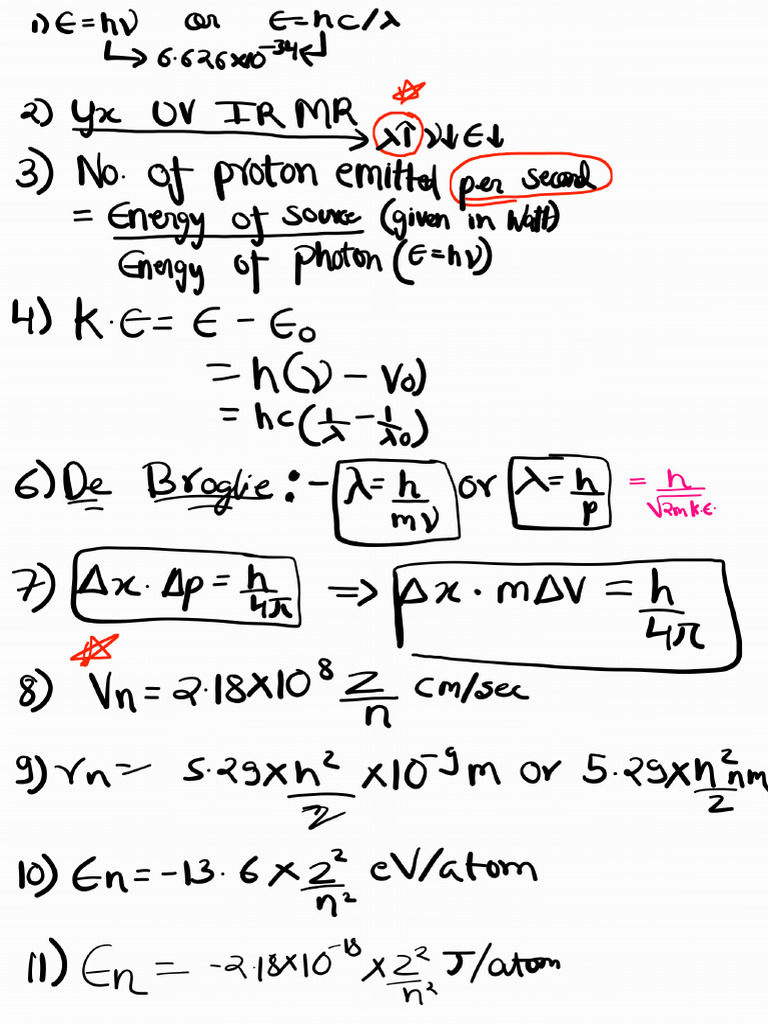 1) E=hν or E=hc/λ
↳ 6.626×10⁻³⁴ ↲
2) γx UV IR MR → λ↑ ν↓ E↓
3) No. of proton emitted per second
= Energy of source (given in Watt)
Energy of photon (E=hν)
4) K.E = E - E₀
= h(ν - ν₀)
= hc(1/λ - 1/λ₀)
6) De Broglie :- λ=h/mv or λ=h/p = h/√2mk.E.
7) Δx. Δp = h/4π ⇒ Δx . mΔV = h/4π
8) Vn = 2.18×10⁸ Z/n cm/sec
9) rn = 5.29×n²/Z ×10⁻⁹ m or 5.29×n²/Z nm
10) En = -13.6 × Z²/n² eV/atom
11) En = -2.18×10⁻¹⁸ × Z²/n² J/atom